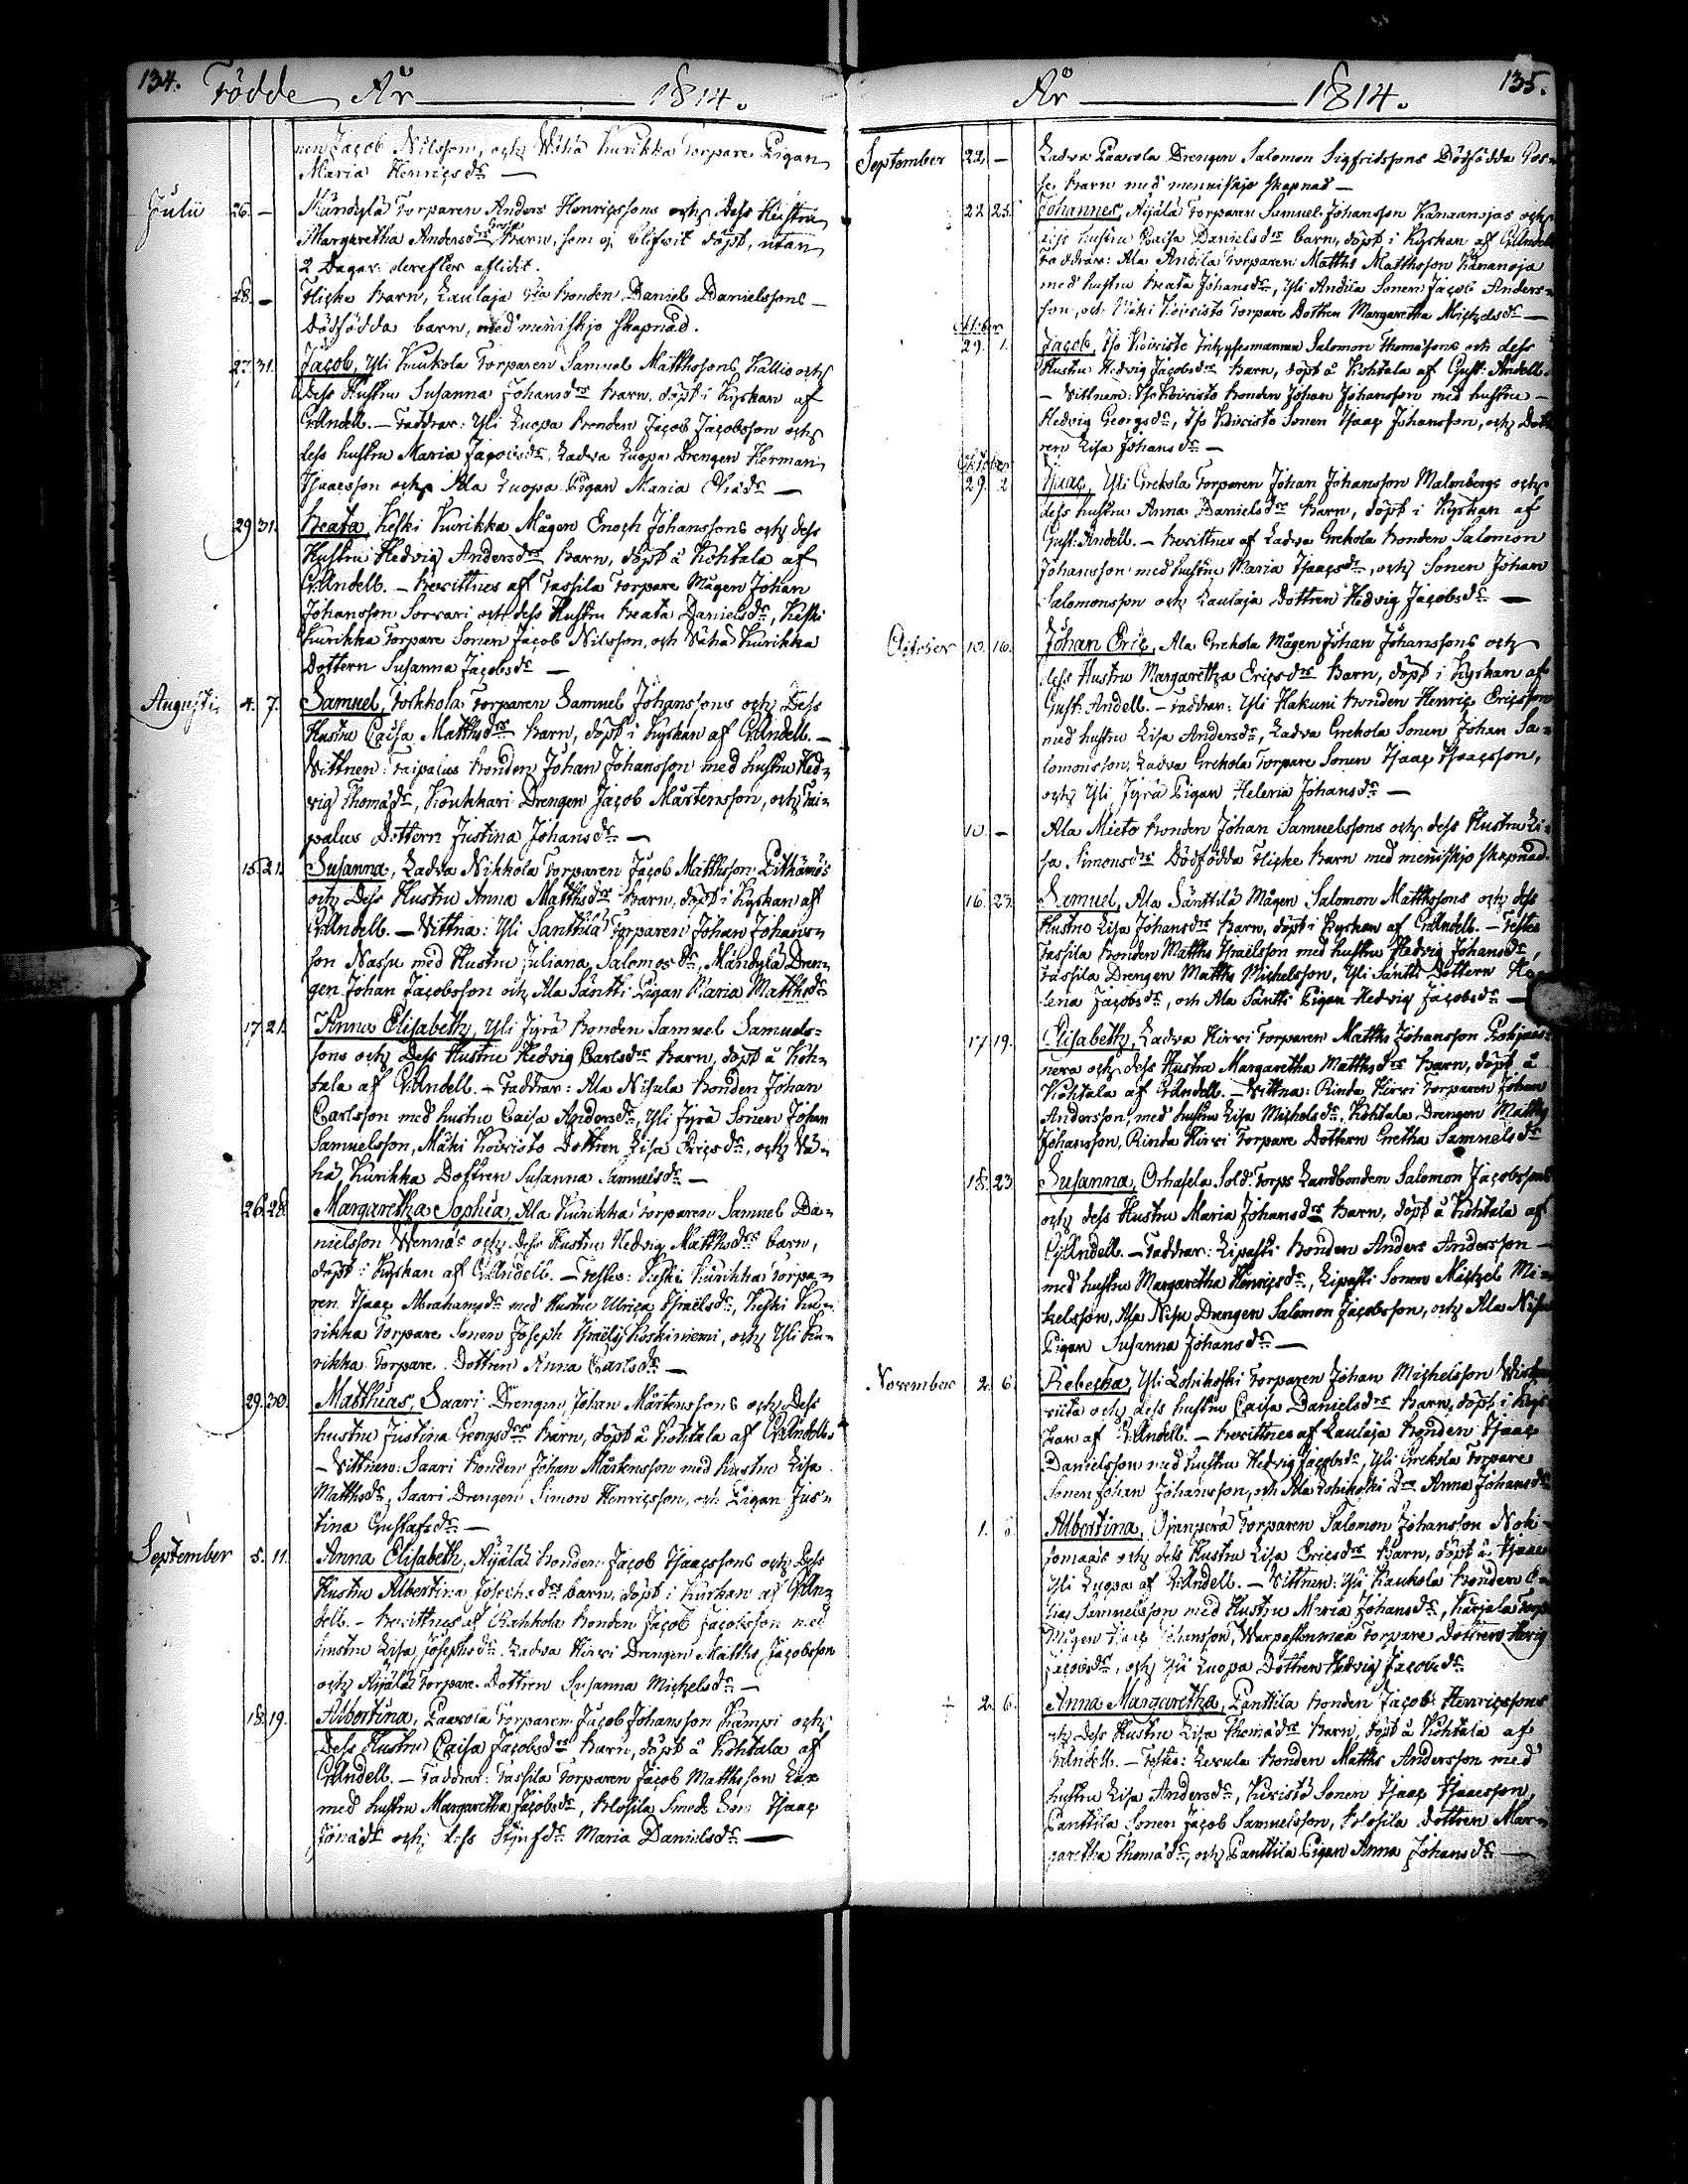 134. Födde År 1814.
nen Jacob Nilsson, och Wähä Kurikka Torpare Pigan
Maria Henricsdr —
Julii 26. — Mändylä Torparen Anders Henricssons och dess Hustru
Margaretha Andersdrs Barn, som ej blifvit döpt, utan
2 Dagar derefter aflidit.
28. — Flicke Barn, Laulaja Bonden Daniel Danielssons —
Dödfödda barn, med menniskjo skapnad.
27. 31. Jacob, Yli Knuukola Torparen Samuel Matthssons Kallio och
dess Hustru Susanna Johansdrs Barn, döpt i Kyrkan af
G:Andell. — Faddrar: Yli Luopa Bonden Jacob Jacobsson och
dess hustru Maria Jacobsdr, Ladva Luopa Drengen Herman
Isaacsson och Ala Luopa Pigan Maria Eliædr —
29 31. Beata, Keski Kurikka Mågen Enoch Johanssons och dess
Hustru Hedvig Andersdrs Barn, döpt å Kohtala af
G:Andell. — Bevittnes af Tassila Torpare Mågen Johan
Johansson Sorvari och dess Hustru Beata Danielsdr, Keski
Kurikka Torpare Sonen Jacob Nilsson, och Vähä Kurikka
Dottern Susanna Jacobsdr —
Augusti 4. 7. Samuel, Tokkola Torparen Samuel Johanssons och Dess
Hustru Caisa Matthsdrs Barn, döpt i Kyrkan af G:Andell. —
Vittnen: Taipalus Bonden Johan Johansson med hustru Hed-
vig Thomædr, Koukkari Drengen Jacob Mårtensson, och Tai-
palus Dottern Justina Johansdr —
15. 21. Susanna, Ladva Nikkola Torparen Jacob Matthsson Pitkämö's
och Dess Hustru Anna Matthsdrs Barn, döpt i Kyrkan af
G:Andell. — Vittna: Yli Santtila Torparen Johan Johans-
son Nassu med Hustru Juliana Salomosdr, Mändylä Dren-
gen Johan Jacobsson och Ala Säntti Pigan Maria Matthsdr
17. 21. Anna Elisabeth, Yli Jyrä Bonden Samuel Samuels-
sons och Dess Hustru Hedvig Carlsdrs Barn, döpt å Koh-
tala af G:Andell. — Faddrar: Ala Nisula Bonden Johan
Carlsson med hustru Caisa Andersdr, Yli Jyrä Sonen Johan
Samuelsson, Mäki Koivisto Dottren Lisa Ericsdr, och Vä-
hä Kurikka Dottren Susanna Samuelsdr —
26. 28. Margaretha Sophia, Ala Kurikka Torparen Samuel Da-
nielsson Wennäs och Dess Hustru Hedvig Matthsdrs barn,
döpt i Kyrkan af G:Andell. — Testes: Keski Kurikka Torpa-
ren Isaac Abrahamsdr med Hustru Ulrica Israelsdr, Keski Ku-
rikka Torpare Sonen Joseph Israels Koskiniemi, och Yli Ku-
rikka Torpare Dottren Anna Carlsdr —
29. 30. Matthias, Saari Drengen Johan Mårtenssons och Dess
hustru Justina Georgsdrs Barn, döpt å Kohtala af G:Andell.
— Vittnen: Saari Bonden Johan Mårtensson med hustru Lisa
Matthsdr, Saari Drengen Simon Henricsson, och Pigan Jus-
tina Gustafsdr —
September 5. 11. Anna Elisabeth, Äijälä Bonden Jacob Isaacssons och Dess
Hustru Albertina Josephsdrs barn, döpt i Kyrkan af G:An-
dell. — Bevittnes af Rahkola Bonden Jacob Jacobsson med
hustru Lisa Josephsdr, Ladva Hirvi Drengen Matths Jacobsson
och Äijälä Torpare Dottren Susanna Michelsdr —
18. 19. Albertina, Paavola Torparen Jacob Johansson Kampi och
Dess Hustru Caisa Jacobsdrs Barn, döpt å Kohtala af
G:Andell. — Faddrar: Tassila Torparen Jacob Matthsson Lax
med hustru Margaretha Jacobsdr, Klosila Smeds Son Isaac
Jonædr och dess Styfdr Maria Danielsdr —
År 1814. 135.
September 22. — Ladva Paavola Drengen Salomon Sigfridssons Dödfödda Gos-
se Barn med menniskjo skapnad —
22 25. Johannes, Äijälä Torparen Samuel Johansson Kanaansjas och
dess hustru Caisa Danielsdrs barn, döpt i Kyrkan af G:Andell
Faddrar: Ala Andila Torparen Matths Matthsson Kananoja
med hustru Beata Johansdr, Yli Andila Sonen Jacob Anders-
son, och Mäki Koivisto Torpare Dottren Margaretha Michelsdr —
October
29. 1. Jacob, Iso Koivisto Inhysesmannen Salomon Thomæsons och dess
Hustru Hedvig Jacobsdrs Barn, döpt å Kohtala af Gust: Andell.
— Vittnen: Iso Koivisto Bonden Johan Johansson med hustru —
Hedvig Georgsdr, Iso Koivisto Sonen Isaac Johansson, och Dott-
ren Lisa Johansdr —
October
29. 2 Isaac, Yli Grekola Torparen Johan Johansson Malmbergs och
dess hustru Anna Danielsdrs Barn, döpt i Kyrkan af
Gust: Andell. — Bevittnes af Ladva Grekola Bonden Salomon
Johansson med hustru Maria Isaacsdr, och Sonen Johan
Salomonsson och Laulaja Dottren Hedvig Jacobsdr —
October 10. 16. Johan Eric, Ala Grekola Mågen Johan Johanssons och
dess Hustru Margaretha Ericsdrs Barn, döpt i Kyrkan af
Gust: Andell. — Faddrar: Yli Hakuni Bonden Henric Ericsson
med hustru Lisa Andersdr, Ladva Grekola Sonen Johan Sa-
lomonsson, Ladva Grekola Torpare Sonen Isaac Isaacsson,
och Yli Jyrä Pigan Helena Johansdr —
10. — Ala Mieto Bonden Johan Samuelssons och dess Hustru Li-
sa Simonsdrs Dödfödda Flicke Barn med menniskjo skapnad.
16. 23. Samuel, Ala Säntti Mågen Salomon Matthssons och dess
Hustru Lisa Johansdrs Barn, döpt i Kyrkan af G:Andell. — Testes
Tassila Bonden Matths Israelsson med hustru Hedvig Johansdr,
Tassila Drengen Matths Michelsson, Yli Säntti Dottern He-
lena Jacobsdr, och Ala Säntti Pigan Hedvig Jacobsdr —
17 19. Elisabeth, Ladva Hirvi Torparen Matths Johansson
och dess Hustru Margaretha Matthsdrs Barn, döpt å
Kohtala af G:Andell. — Vittna: Rinda Hirvi Torparen Johan
Andersson, med hustru Lisa Michelsdr, Kohtala Drengen Matths
Johansson, Rinda Hirvi Torpare Dottern Gretha Samuelsdr
18. 23 Susanna, Orhasela Sold: Torps Landbonden Salomon Jacobssons
och dess Hustru Maria Johansdrs Barn, döpt å Kohtala af
G:Andell. — Faddrar: Lipasti Bonden Anders Andersson —
med hustru Margaretha Henricsdr, Lipasti Sonen Michel Mi-
kelsson, Ala Nisu Drengen Salomon Jacobsson, och Ala Nisu
Pigan Susanna Johansdr —
November 2. 6. Rebecka, Yli Lohikoski Torparen Johan Michelsson
och dess hustru Caisa Danielsdrs Barn, döpt i Kyr-
kan af G:Andell. — Bevittnes af Laulaja Bonden Isaac
Danielsson med hustru Hedvig Jacobsdr, Yli Grekola Torpare
Sonen Johan Johansson, och Ala Lohikoski Anna Johansdr
1. 6 Albertina, Torparen Salomon Johansson
och dess Hustru Lisa Ericsdrs Barn, döpt å
Yli Luopa af G:Andell. — Vittnen: Yli Kaukola Bonden E-
lias Samuelsson med Hustru Maria Johansdr, Karjala Torp
Mågen Isaac Johansson, Torpare Dottren
Jacobsdr, och Yli Luopa Dottren Hedvig Jacobsdr
2. 6. Anna Margaretha, Panttila Bonden Jacob Henricssons
och Dess Hustru Lisa Thomædrs Barn, döpt å Kohtala af
G:Andell. — Testes: Levula Bonden Matths Andersson med
hustru Lisa Andersdr, Koivisto Sonen Isaac Isaacsson,
Panttila Sonen Jacob Samuelsson, Klosila Dottren Mar-
garetha Thomædr, och Panttila Pigan Anna Johansdr —